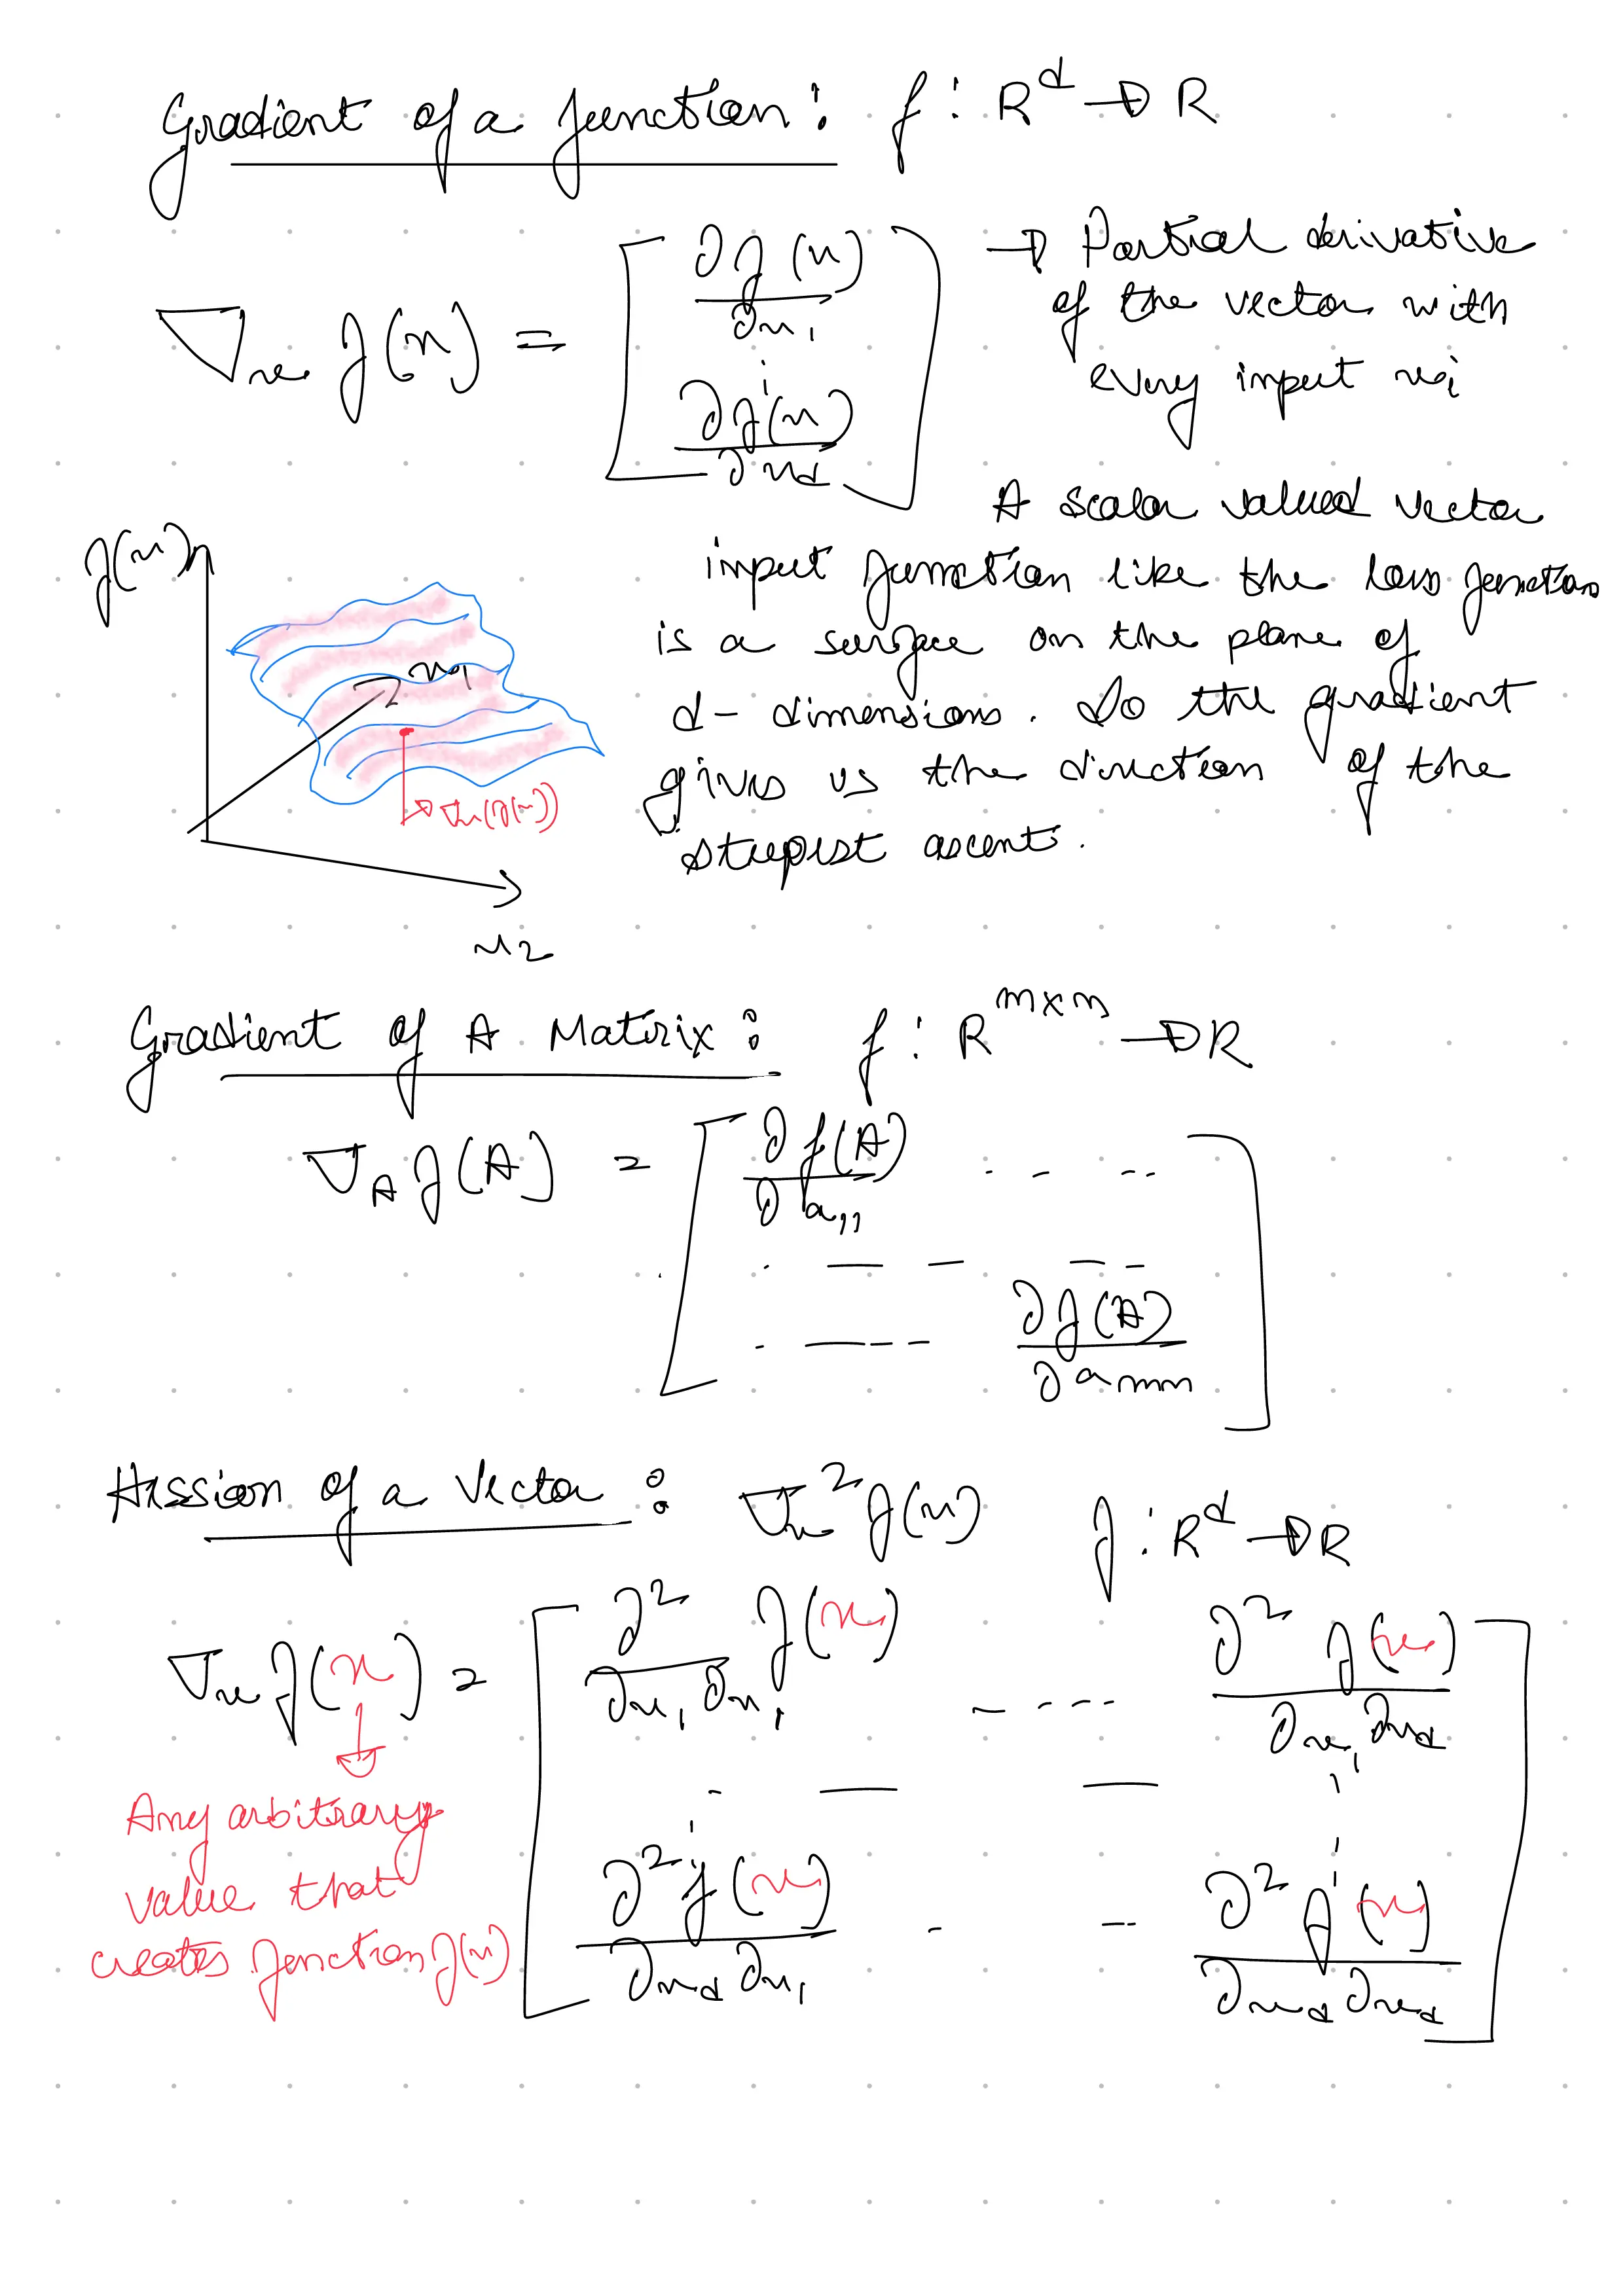 Gradient of a function : f : R^d → R
∇x f(x) = [ ∂f(x)/∂x1 ⋮ ∂f(x)/∂xd ]
→ Partial derivative
of the vector with
every input xi
A scalar valued vector
input function like the loss function
is a surface on the plane of
d- dimensions. So the gradient
gives us the direction of the
steepest ascent.
f(x)
x1
→ ∇x(f(x))
x2
Gradient of A Matrix : f : R^{m×n} → R
∇A f(A) = [ ∂f(A)/∂a11 . . . . 
. — — — —
. — — — ∂f(A)/∂amn ]
Hessian of a Vector : ∇x² f(x) f : R^d → R
∇x f(x) = [ ∂²/∂x1∂x1 f(x) - - - - ∂² f(x)/∂x1∂xd
. — —
∂² f(x)/∂xd∂x1 . - - ∂² f(x)/∂xd∂xd ]
Any arbitrary
value that
creates function f(x)